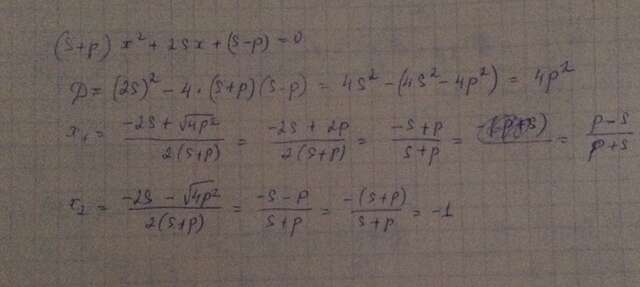 (s+p) x² + 2sx + (s-p) = 0
D = (2s)² - 4 · (s+p)(s-p) = 4s² - (4s² - 4p²) = 4p²
x₁ = (-2s + √4p²)/(2(s+p)) = (-2s + 2p)/(2(s+p)) = (-s+p)/(s+p) = = (p-s)/(p+s)
x₂ = (-2s - √4p²)/(2(s+p)) = (-s-p)/(s+p) = (-(s+p))/(s+p) = -1